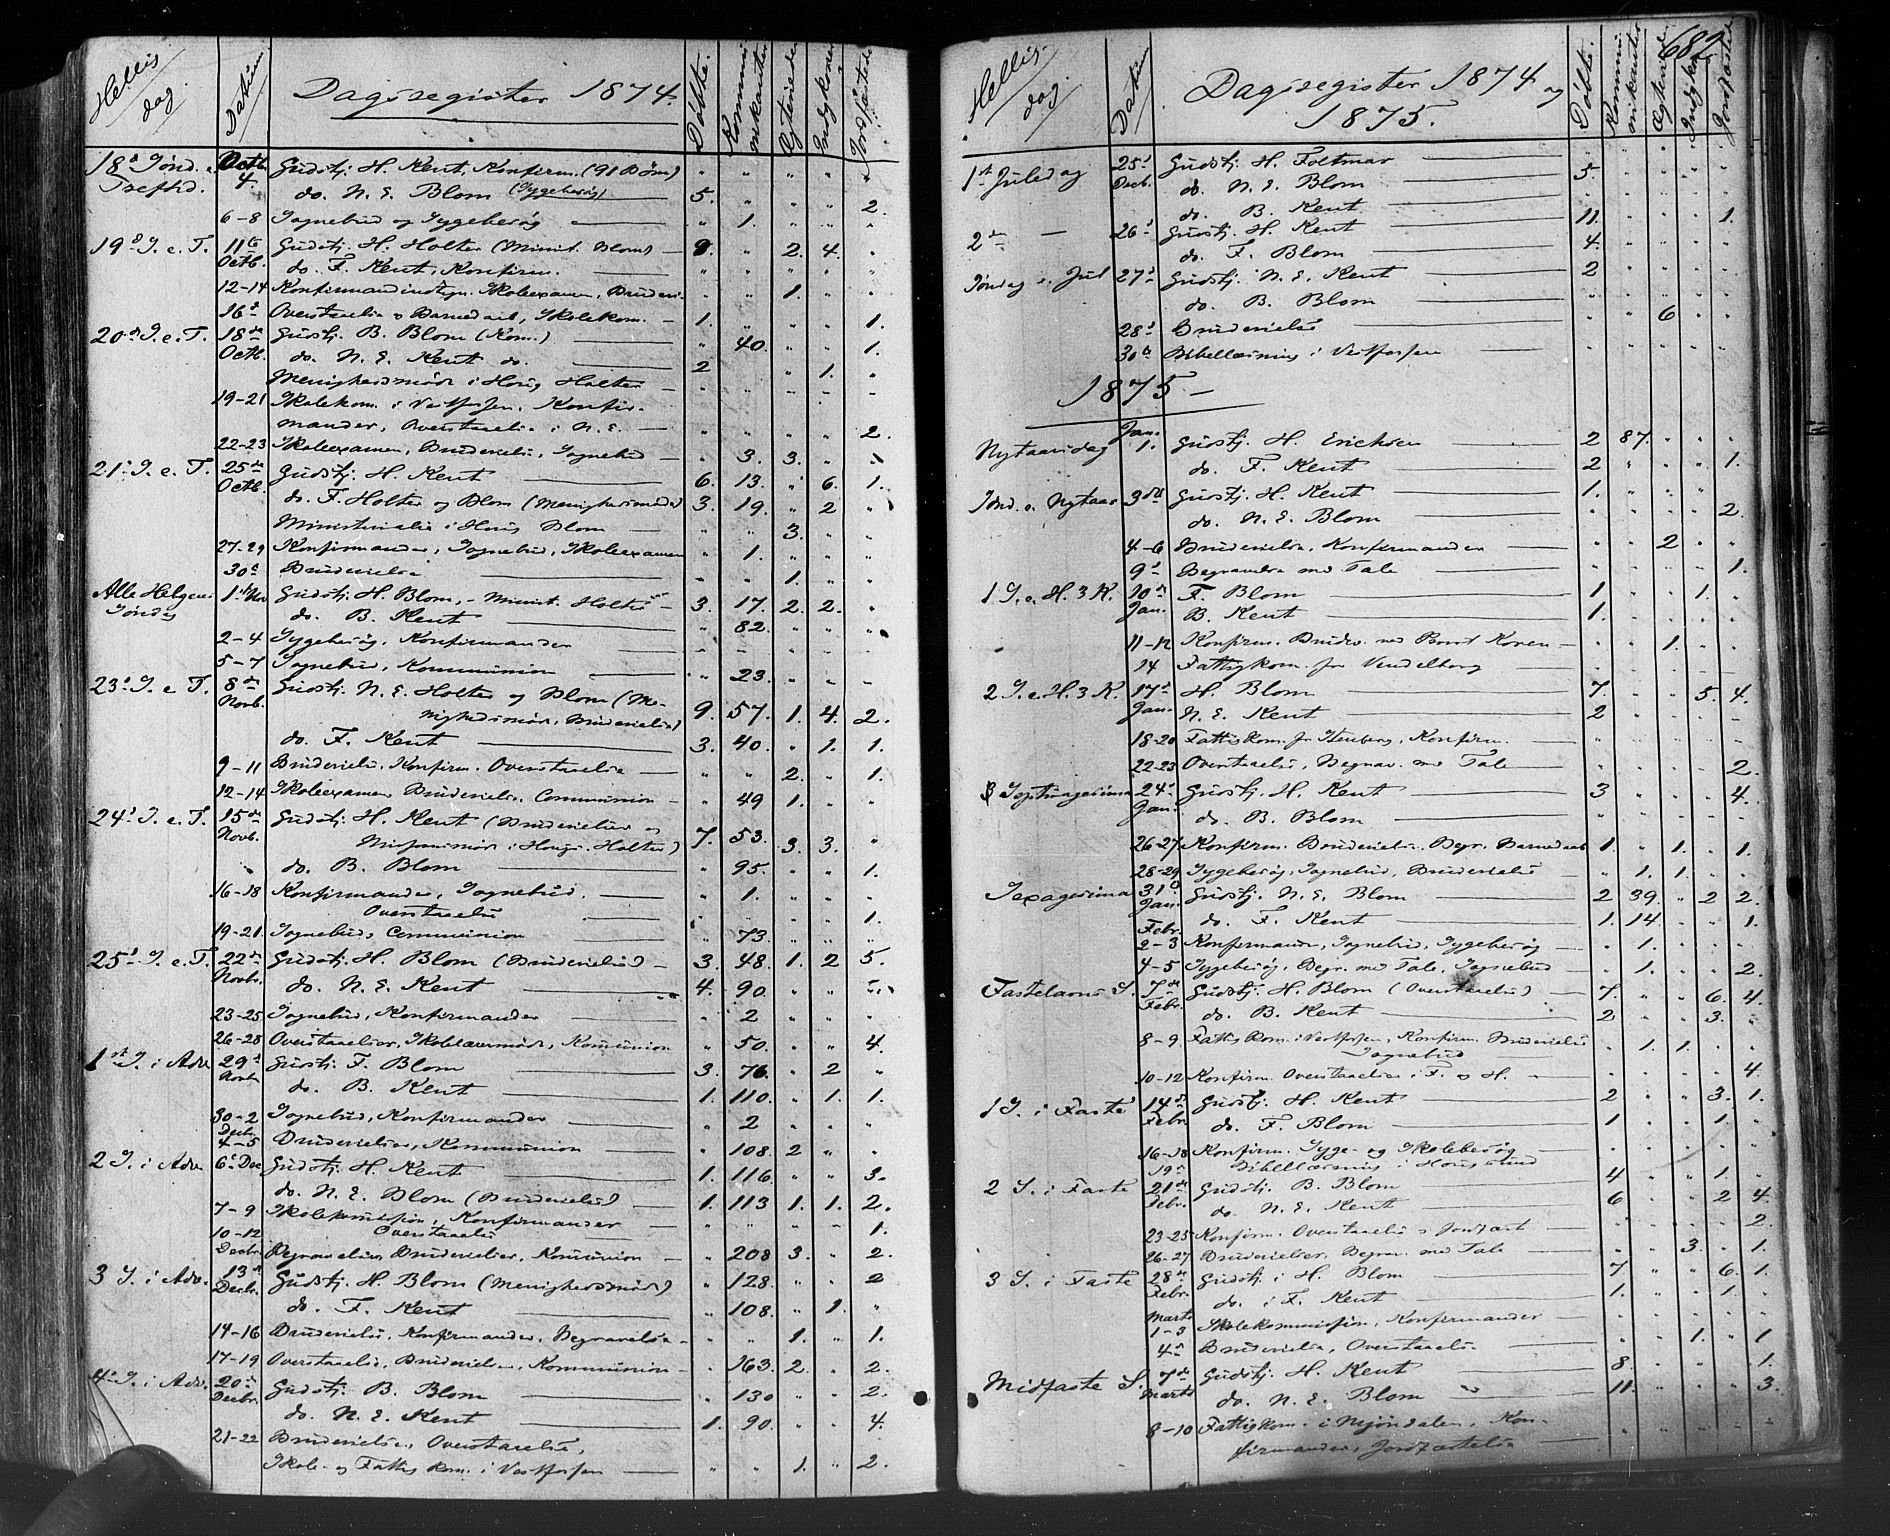 Hellig
dag.
Datum
Dagsregister 1874.
Døbte.
Kommuni
nikanter
Ægteviede
Indgkoner
Jordfæstede
18d Sønd. e Octb. Gudstj. H. Kent, Konfirm. (91 Børn) " " " " "
Treftd. 4. do. N. E. Blom (Sygebesøg) 5. " " " 2.
6-8 Sognebud og Sygebesøg " 1. " " "
19d S. e. T. 11te Gudstj. H. Holter (Minist. Blom) 9. " 2. 4. "
Octb. do. F. Kent, Konfirm. " " " " "
12-14 Konfirmandindtegn. Skoleexamen, Brudev. " " 1. " "
16d Overstaaelse o Barnedaab, Skolekom. 1. " " " 1.
20de S. e. T. 18de Gudstj. B. Blom (Kom.) " 40. " " 1.
Octb. do. N. E. Kent do. 2 " " 1. "
Menighedsmøde i Houg Holter
19-21 Skolekom. i Vestfossen, Konfir-
mander, Overstaaelse i N. E. " " " " 2.
22-23 Skoleexamen, Brudevielse, Sognebud " 3. 3. " "
21d S. e. T. 25de Gudstj. H. Kent 6. 13. " 6. 1.
Octb. do. F. Holter og Blom (Menighedsmøde) 3. 19. " 2 "
Ministerialia i Houg Blom " " 3. " "
27-29 Konfirmander, Sognebud, Skoleexamen " 1. " " "
30d Brudevielse " " 1. " "
Alle Helgens 1ste Nov Gudstj. H. Blom, - Minist. Holter 3. 17. 2. 2. "
Søndag do. B. Kent " 82. " " "
2-4 Sygebesøg, Konfirmander
5-7 Sognebud, Kommunion " 23. " " "
23d S. e T. 8de Gudstj. N. E. Holter og Blom (Me-
Novb. nighedsmøde, Brudevielse) 9. 57. 1. 4. 2.
do. F. Kent 3. 40. " 1. 1.
9-11 Brudevielse, Konfirm. Overstaaelse " " 2. " 1.
12-14 Skoleexamen Brudevielse, Communion " 49 1. " "
24d S. e. T. 15de Gudstj. H. Kent (Brudevielser og
Novb. Missionsmøde i Houg. Holter) 7. 53. 3. 3. "
do. B. Blom " 95. " " 1.
16-18 Konfirmander, Sognebud. " 1. " " "
Overstaaelse " " " " 1.
19-21 Sognebud, Communion " 73. " " "
25d S. e. T. 22de Gudstj. H. Blom (Brudevielse) 3. 48. 1. 2 5.
Novbr. do. N. E. Kent 4. 90. " " "
23-25 Sognebud, Konfirmander " 2 " " "
26-28 Overstaaelser, Skolelærermøde, Komunion " 50. " " 4.
1ste S. i Adv. 29d Gudstj. F. Blom 3. 76. " 2 "
Novbr do. B. Kent 1. 110. " 1. 1.
30-2 Sognebud, Konfirmander " 2 " " "
Decbr
4-5 Brudevielse, Kommunion " 108. 2 " "
2 S. i Adv. 6d Dec Gudstj. H. Kent 1. 116. " " 3.
do. N. E. Blom (Brudevielse) 1. 113 1. 1. 2.
7-9 Skolekomission, Konfirmander
10-12 Overstaaelse 1.
Decbr. Begravelser, Brudevielser, Komunion " 208 3. " 2.
3 S. i Adv. 13d Gudstj. H. Blom (Menighedsmøde) " 128. " " 2
Decbr. do. F. Kent " 108. " 1. "
14-16 Brudevielse, Konfirmander, Begravelse " " 1. " 1.
17-19 Overstaaelse, Brudevielse, Kommunion " 163. 2. " 2.
4d S. i Adv. 20de Gudstj. B. Blom " 130 " " 2.
Decbr. do. N. E. Kent 1. 90. " " 4.
21-22 Brudevielse, Overstaaelse,
Skole- og Fattigkom. i Vestfossen " " 1. " 2.
682
Hellig
dag.
Datum
Dagsregister 1874 og
1875.
Døbte.
Kommuni
nikanter
Ægteviede
Indgkon
Jordfæstede
1ste Juledag 25d Gudstj. H. Foltmar 5. " " " "
Decb. do. N. E. Blom
do. B. Kent 11. " " " 1.
2den - 26d Gudstj. H. Kent 4. " " " "
do. F. Blom 2 " " " "
Søndag e. Jul 27d Gudstj. N. E. Kent
do. B. Blom
28d Brudevielse " " 6 " "
30d Bibellæsning i Vestfossen
1875 -
Jan.
Nytaarsdag 1. Gudstj. H. Ericksen 2 87. " " "
do. F. Kent 2 " " " 1.
Sønd. e. Nytaar 3die Gudstj. H. Kent 1. " " " "
do. N. E. Blom " " " " 2.
4-6 Brudevielse, Konfirmander " " 2 " "
9d Begravelse med Tale " " " " 1.
1 S. e. H. 3 K. 10de F. Blom 1 " " 1. "
Jan. B. Kent 1. " " " "
11-12 Konfirm. Brudev. med Borrd Koren " " 1. " "
14 Fattigkom. for Vendelborg
2 S. e. H. 3 K. 17d H. Blom 7. " " 5. 4.
Jan. N. E. Kent 2 " " " "
18-20 Fattigkom. for Stenberg, Konfirm.
22-23 Overstaaelse, Begrav. med Tale " " " " 2.
Septuagesima 24d Gudstj. H. Kent 3 " " " 4.
Jan. do. B. Blom
26-27 Konfirm. Brudevielse. Begr. Barnedaab 1. " 1. " 1.
28-29 Sygebesøg, Sognebud, Brudevielse " 1. 1. " "
Sexagesima 31d Gudstj. N. E. Blom 2 39. " 2 2.
Jan. do. F. Kent 1. 14. " " 1.
Febr.
2-3 Konfirmander, Sognebud, Sygebesøg " 1. " " "
4-5 Sygebesøg, Begr. med Tale, Sognebud " 1. " " 2.
Fastelavns S. 7de Gudstj. H. Blom (Overstaaelse) 7. " " 6. 4.
Febr. do. B. Kent 2 " " 3. "
8-9 Fattigkom. i Vestfossen, Konfirm. Brudevielse
Sognebud " 1. 1. " "
10-12 Konfirm. Overstaaelse i F. og H. " " " " 4
1 S. i Faste 14d Gudstj. H. Kent 2 " " 3. 1.
Febr do. F. Blom 1 " " 1. "
16-18 Konfirm. Syge- og Skolebesøg
19d Bibellæsning i Hougsund
2 S. i Faste 21de Gudstj. B. Blom 4 " " 1. "
Febr. do. N. E. Kent 6 " " 2 4.
23-25 Konfirm. Overstaaelse o Jordfæst 2.
26-27 Brudevielser, Begrav. med Tale " " 3. " 1.
3 S. i Faste 28de Gudstj. i H. Blom 7 " " 6. 1.
Febr. do. i F. Kent 1. " " 1. "
Marts
1-3 Skolekommission, Konfirmander
4d Brudevielse, Overstaaelse " " 1. " 1
Midfaste S. 7de Gudstj. H. Kent 8 " " " 1.
Marts do. N. E. Blom 11. " " " 3.
8-10 Fattigkom. i Mjøndalen, Kon-
firmander, Jordfæstelse